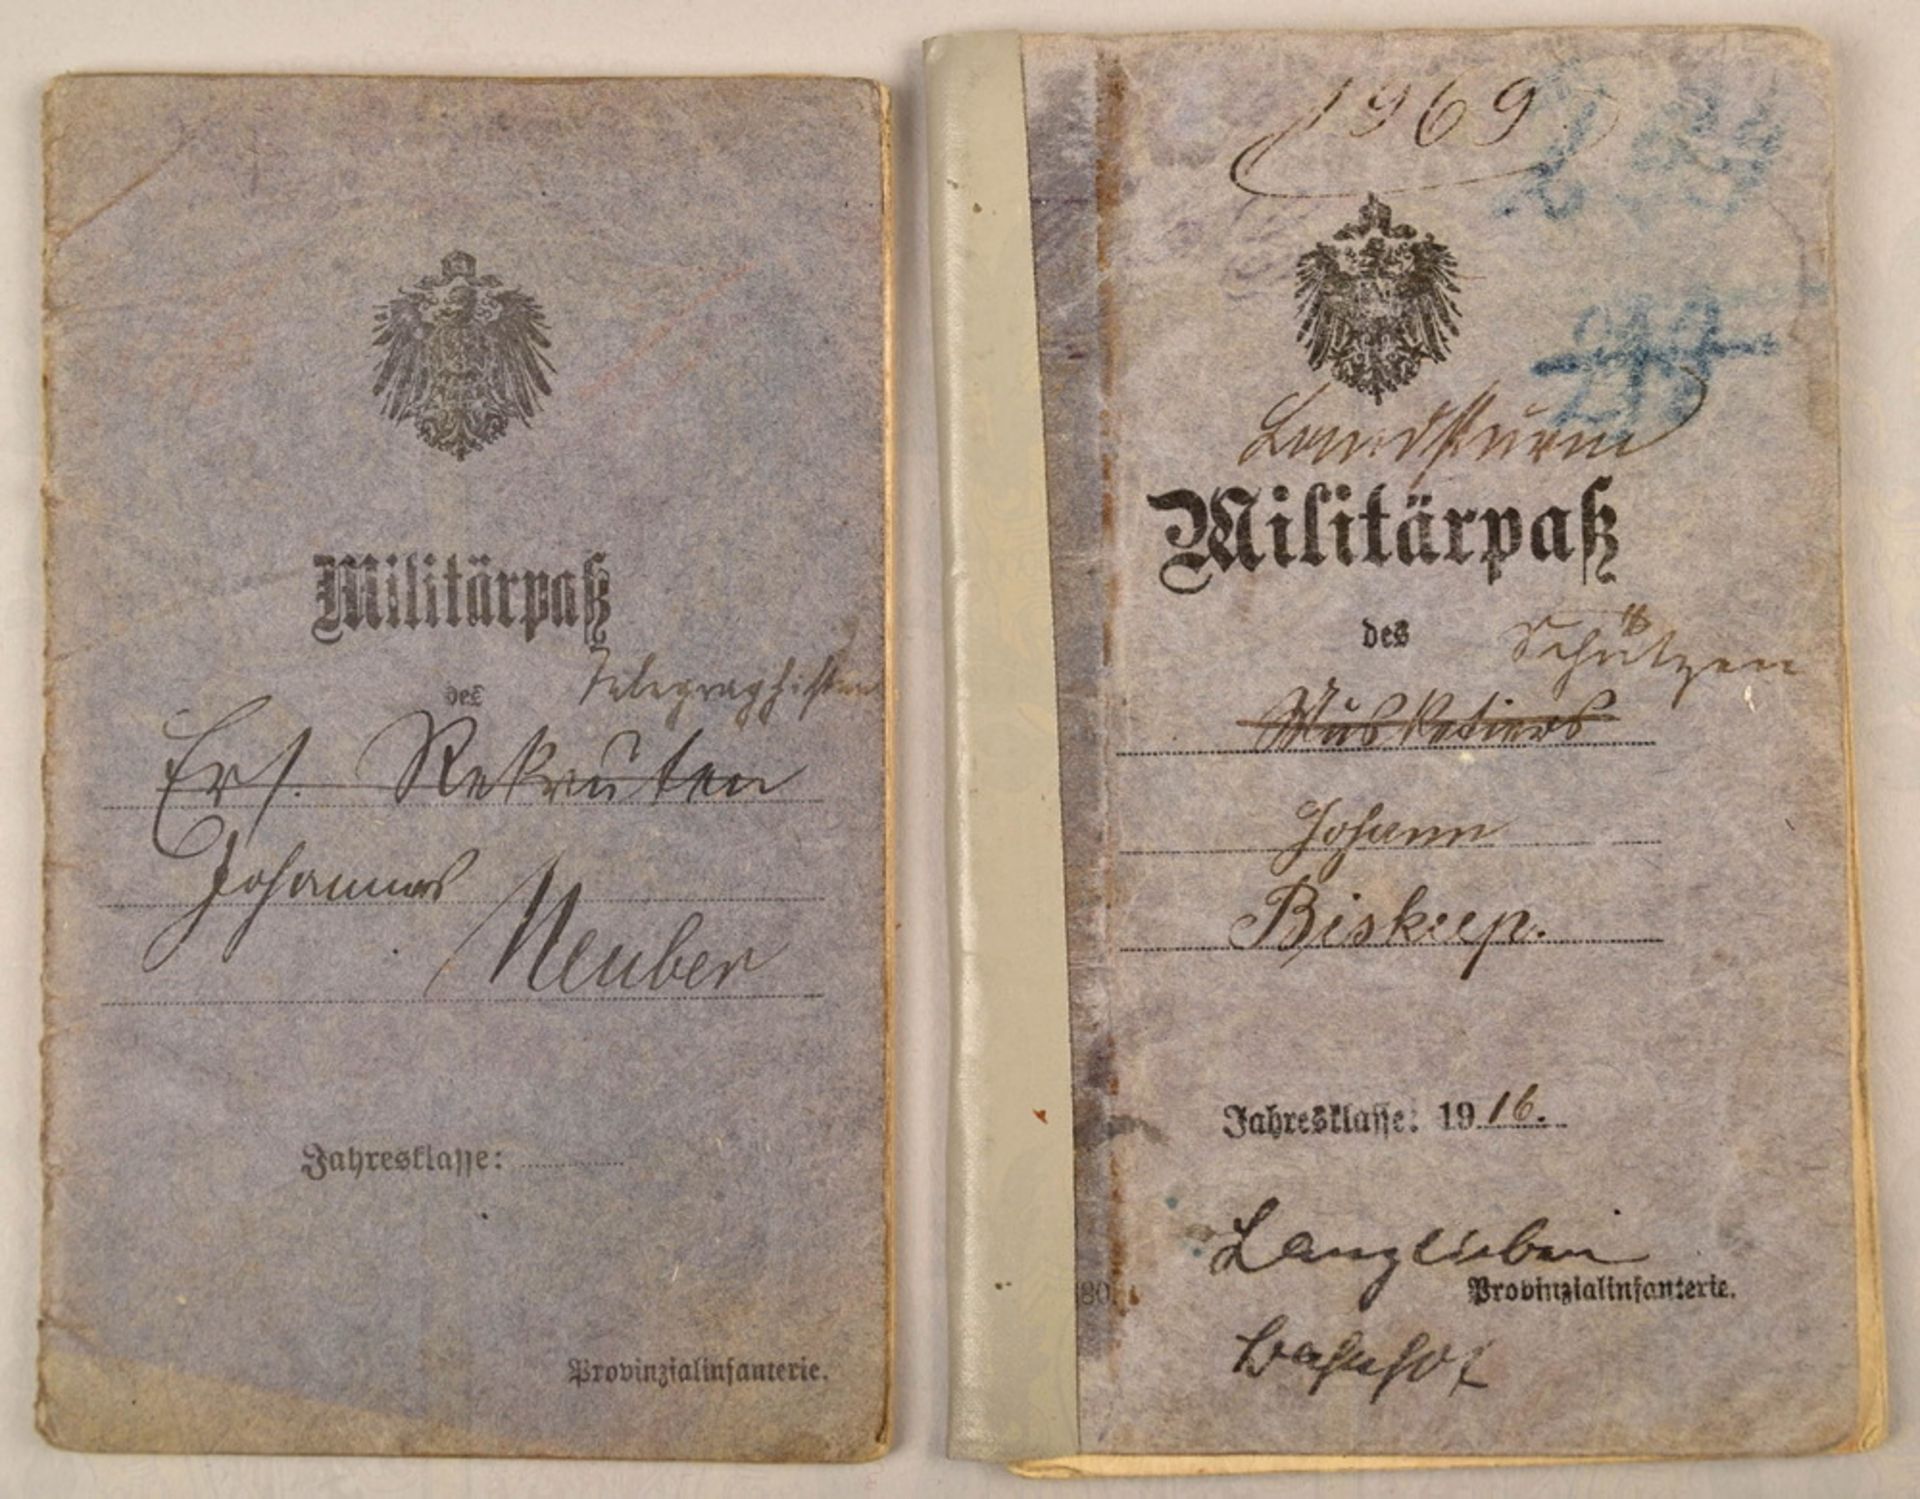 Militärpaß
des Telegraphisten
Ers. Rekruten
Johannes
Neuber
Jahresklasse:
Provinzialinfanterie.
1969
Landsturm
Militärpaß
des Schützen
Musketiers
Johann
Biskup.
Jahresklasse: 1916.
Provinzialinfanterie.
Bahnhof